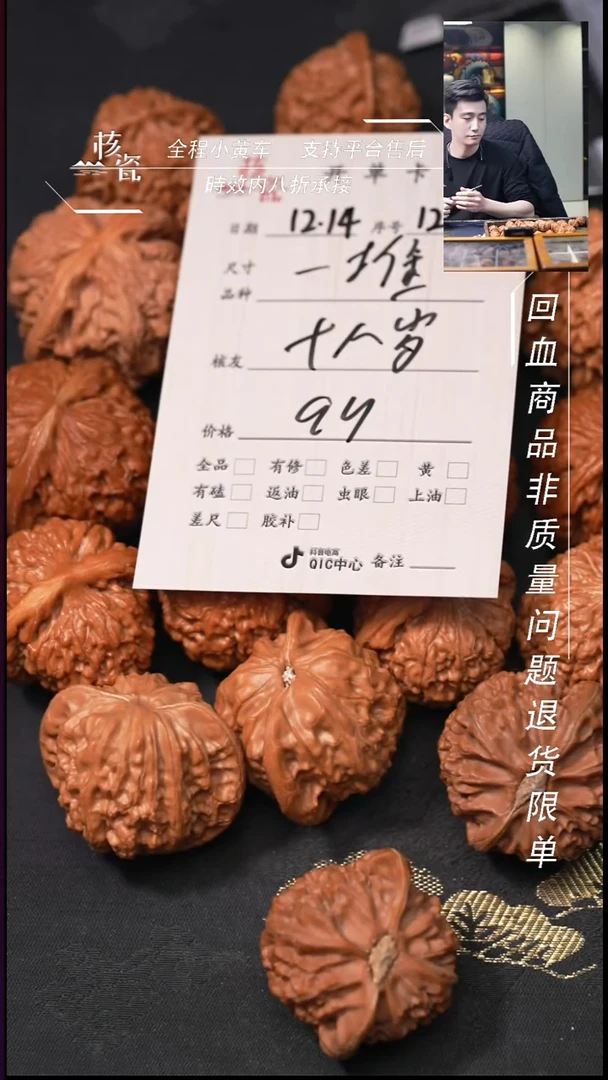 核瓷
全程小黄车 支持平台售后
時效内八折承接
单卡
日期 12.14 序号 12
尺寸 一堆
品种
核友 十八岁
价格 94
全品 有修 色差 黄
有磕 返油 虫眼 上油
差尺 胶补
抖音电商
QIC中心 备注
回血商品非质量问题退货限单